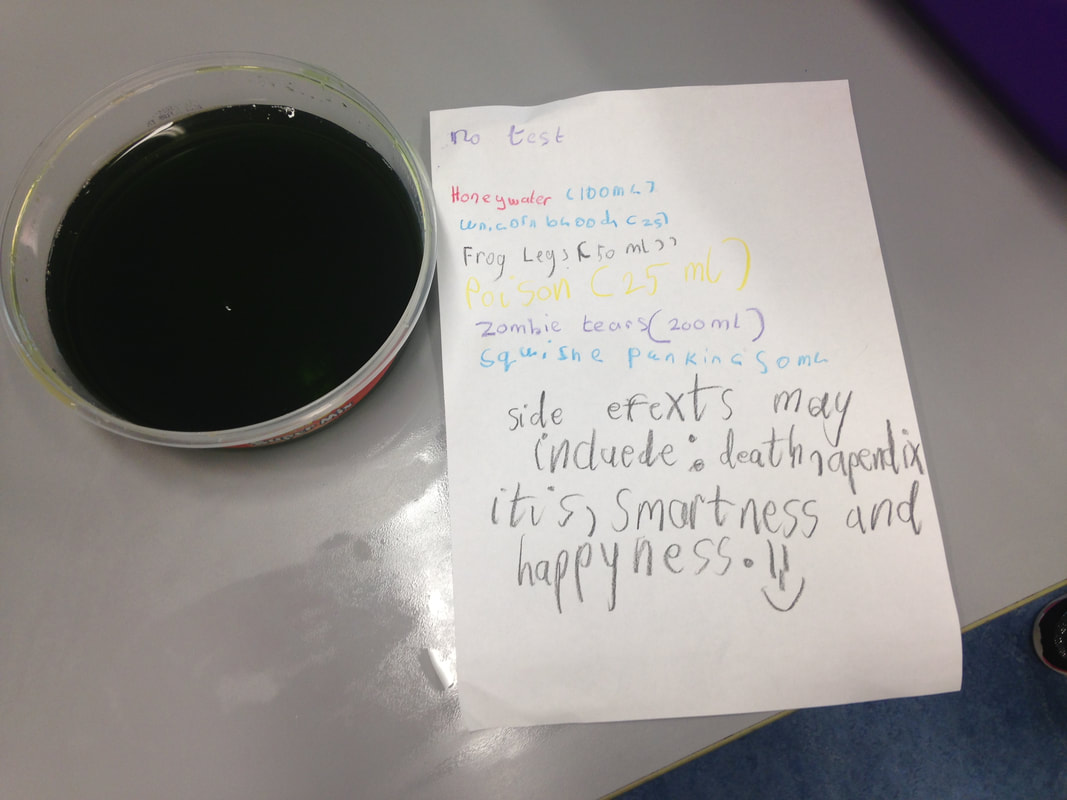 no test
Honeywater (100mL)
unicorn blood (25)
Frog Legs (50 ml))
Poison (25 ml)
Zombie tears (200ml)
50mL
side efexts may
incluede: death, apendix
itis, smartness and
happyness.